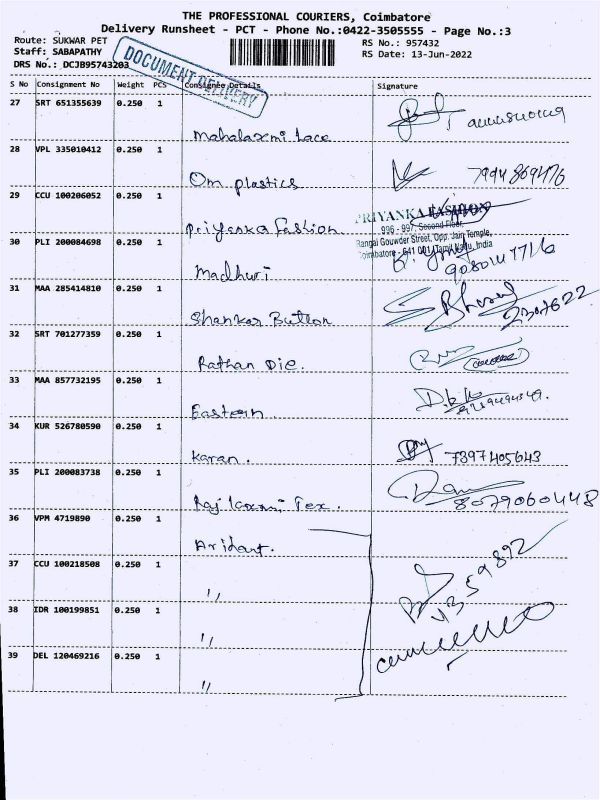 THE PROFESSIONAL COURIERS, Coimbatore
Delivery Runsheet - PCT - Phone No.:0422-3505555 - Page No.:3
Route: SUKWAR PET
RS No.: 957432
Staff: SABAPATHY
RS Date: 13-Jun-2022
DRS No.: DCJB95743203
DOCUMENT DELIVERY
S No Consignment No Weight PCS Consignee Details Signature
27 SRT 651355639 0.250 1
Mahalaxmi Lace
28 VPL 335010412 0.250 1
Om plastics 7994869476
29 CCU 100206052 0.250 1
Priyanka Fashion
PRIYANKA FASHION
996 - 997, Second Floor,
Rangai Gouwder Street, Opp. Jain Temple,
Coimbatore - 641 001, Tamil Nadu, India
30 PLI 200084698 0.250 1
Madhuri
31 MAA 285414810 0.250 1
Shankar Button
32 SRT 701277359 0.250 1
Rathan Die.
33 MAA 857732195 0.250 1
Eastern
34 KUR 526780590 0.250 1
Karan. 7397405643
35 PLI 200083738 0.250 1
Raj laxmi Tex. 8079060448
36 VPM 4719890 0.250 1
Aridant.
37 CCU 100218508 0.250 1
"
38 IDR 100199851 0.250 1
"
39 DEL 120469216 0.250 1
"